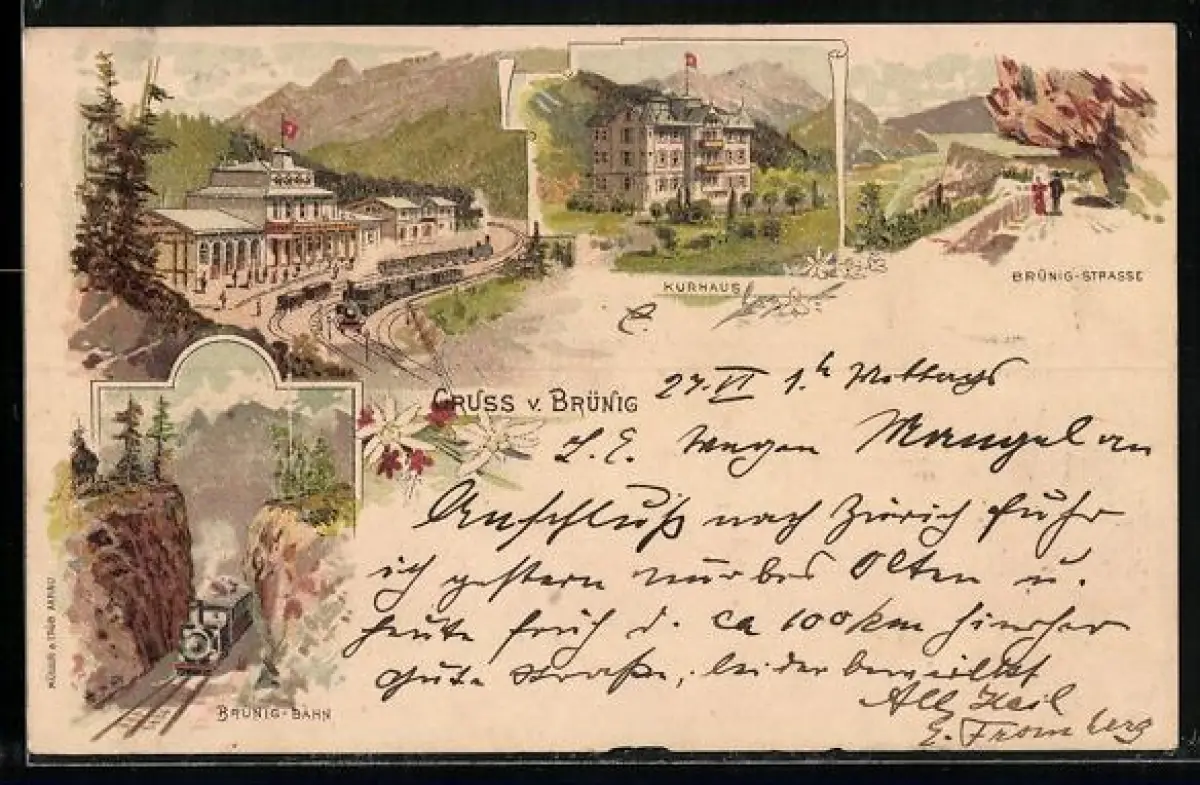 KURHAUS
BRÜNIG-STRASSE
GRUSS V. BRÜNIG
27. VI 1h Mittags
L. E. Wegen Mangel an
Anschluß nach Zürich fuhr
ich gestern nur bis Olten u.
heute früh d. ca 100 km hierher
gute Straße, leider bewölkt
All Heil
E. Fromberg
BRÜNIG-BAHN
MÜLLER & TRÜB AARAU